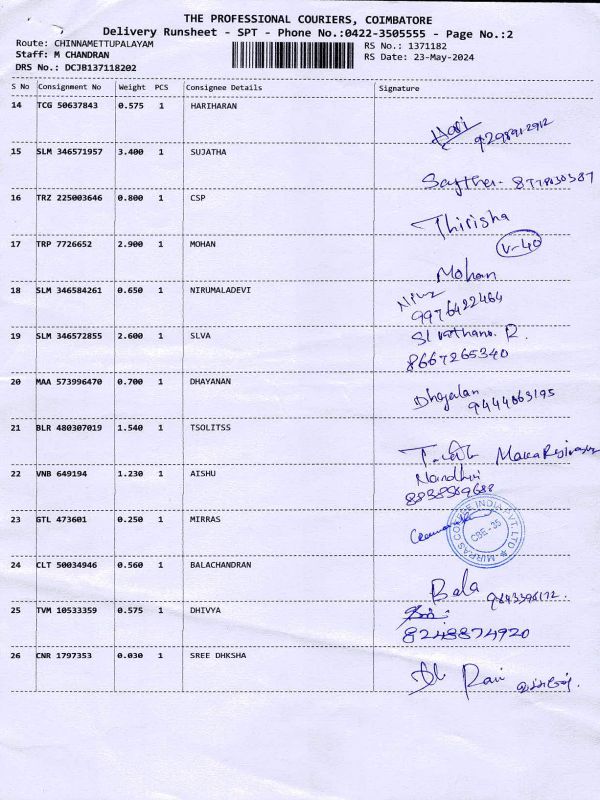 THE PROFESSIONAL COURIERS, COIMBATORE
Delivery Runsheet - SPT - Phone No.:0422-3505555 - Page No.:2
Route: CHINNAMETTUPALAYAM
RS No.: 1371182
Staff: M CHANDRAN
RS Date: 23-May-2024
DRS No.: DCJB137118202
S No Consignment No Weight PCS Consignee Details Signature
14 TCG 50637843 0.575 1 HARIHARAN
Hari
15 SLM 346571957 3.400 1 SUJATHA
16 TRZ 225003646 0.800 1 CSP
Thirisha
V-40
17 TRP 7726652 2.900 1 MOHAN
Mohan
18 SLM 346584261 0.650 1 NIRUMALADEVI
9976422464
19 SLM 346572855 2.600 1 SLVA
8667265340
20 MAA 573996470 0.700 1 DHAYANAN
Dhayalan
21 BLR 480307019 1.540 1 TSOLITSS
22 VNB 649194 1.230 1 AISHU
Nandhini
23 GTL 473601 0.250 1 MIRRAS
MIRRAS INDIA PVT. LTD
CBE-35
24 CLT 50034946 0.560 1 BALACHANDRAN
Bala
25 TVM 10533359 0.575 1 DHIVYA
8248874920
26 CNR 1797353 0.030 1 SREE DHKSHA